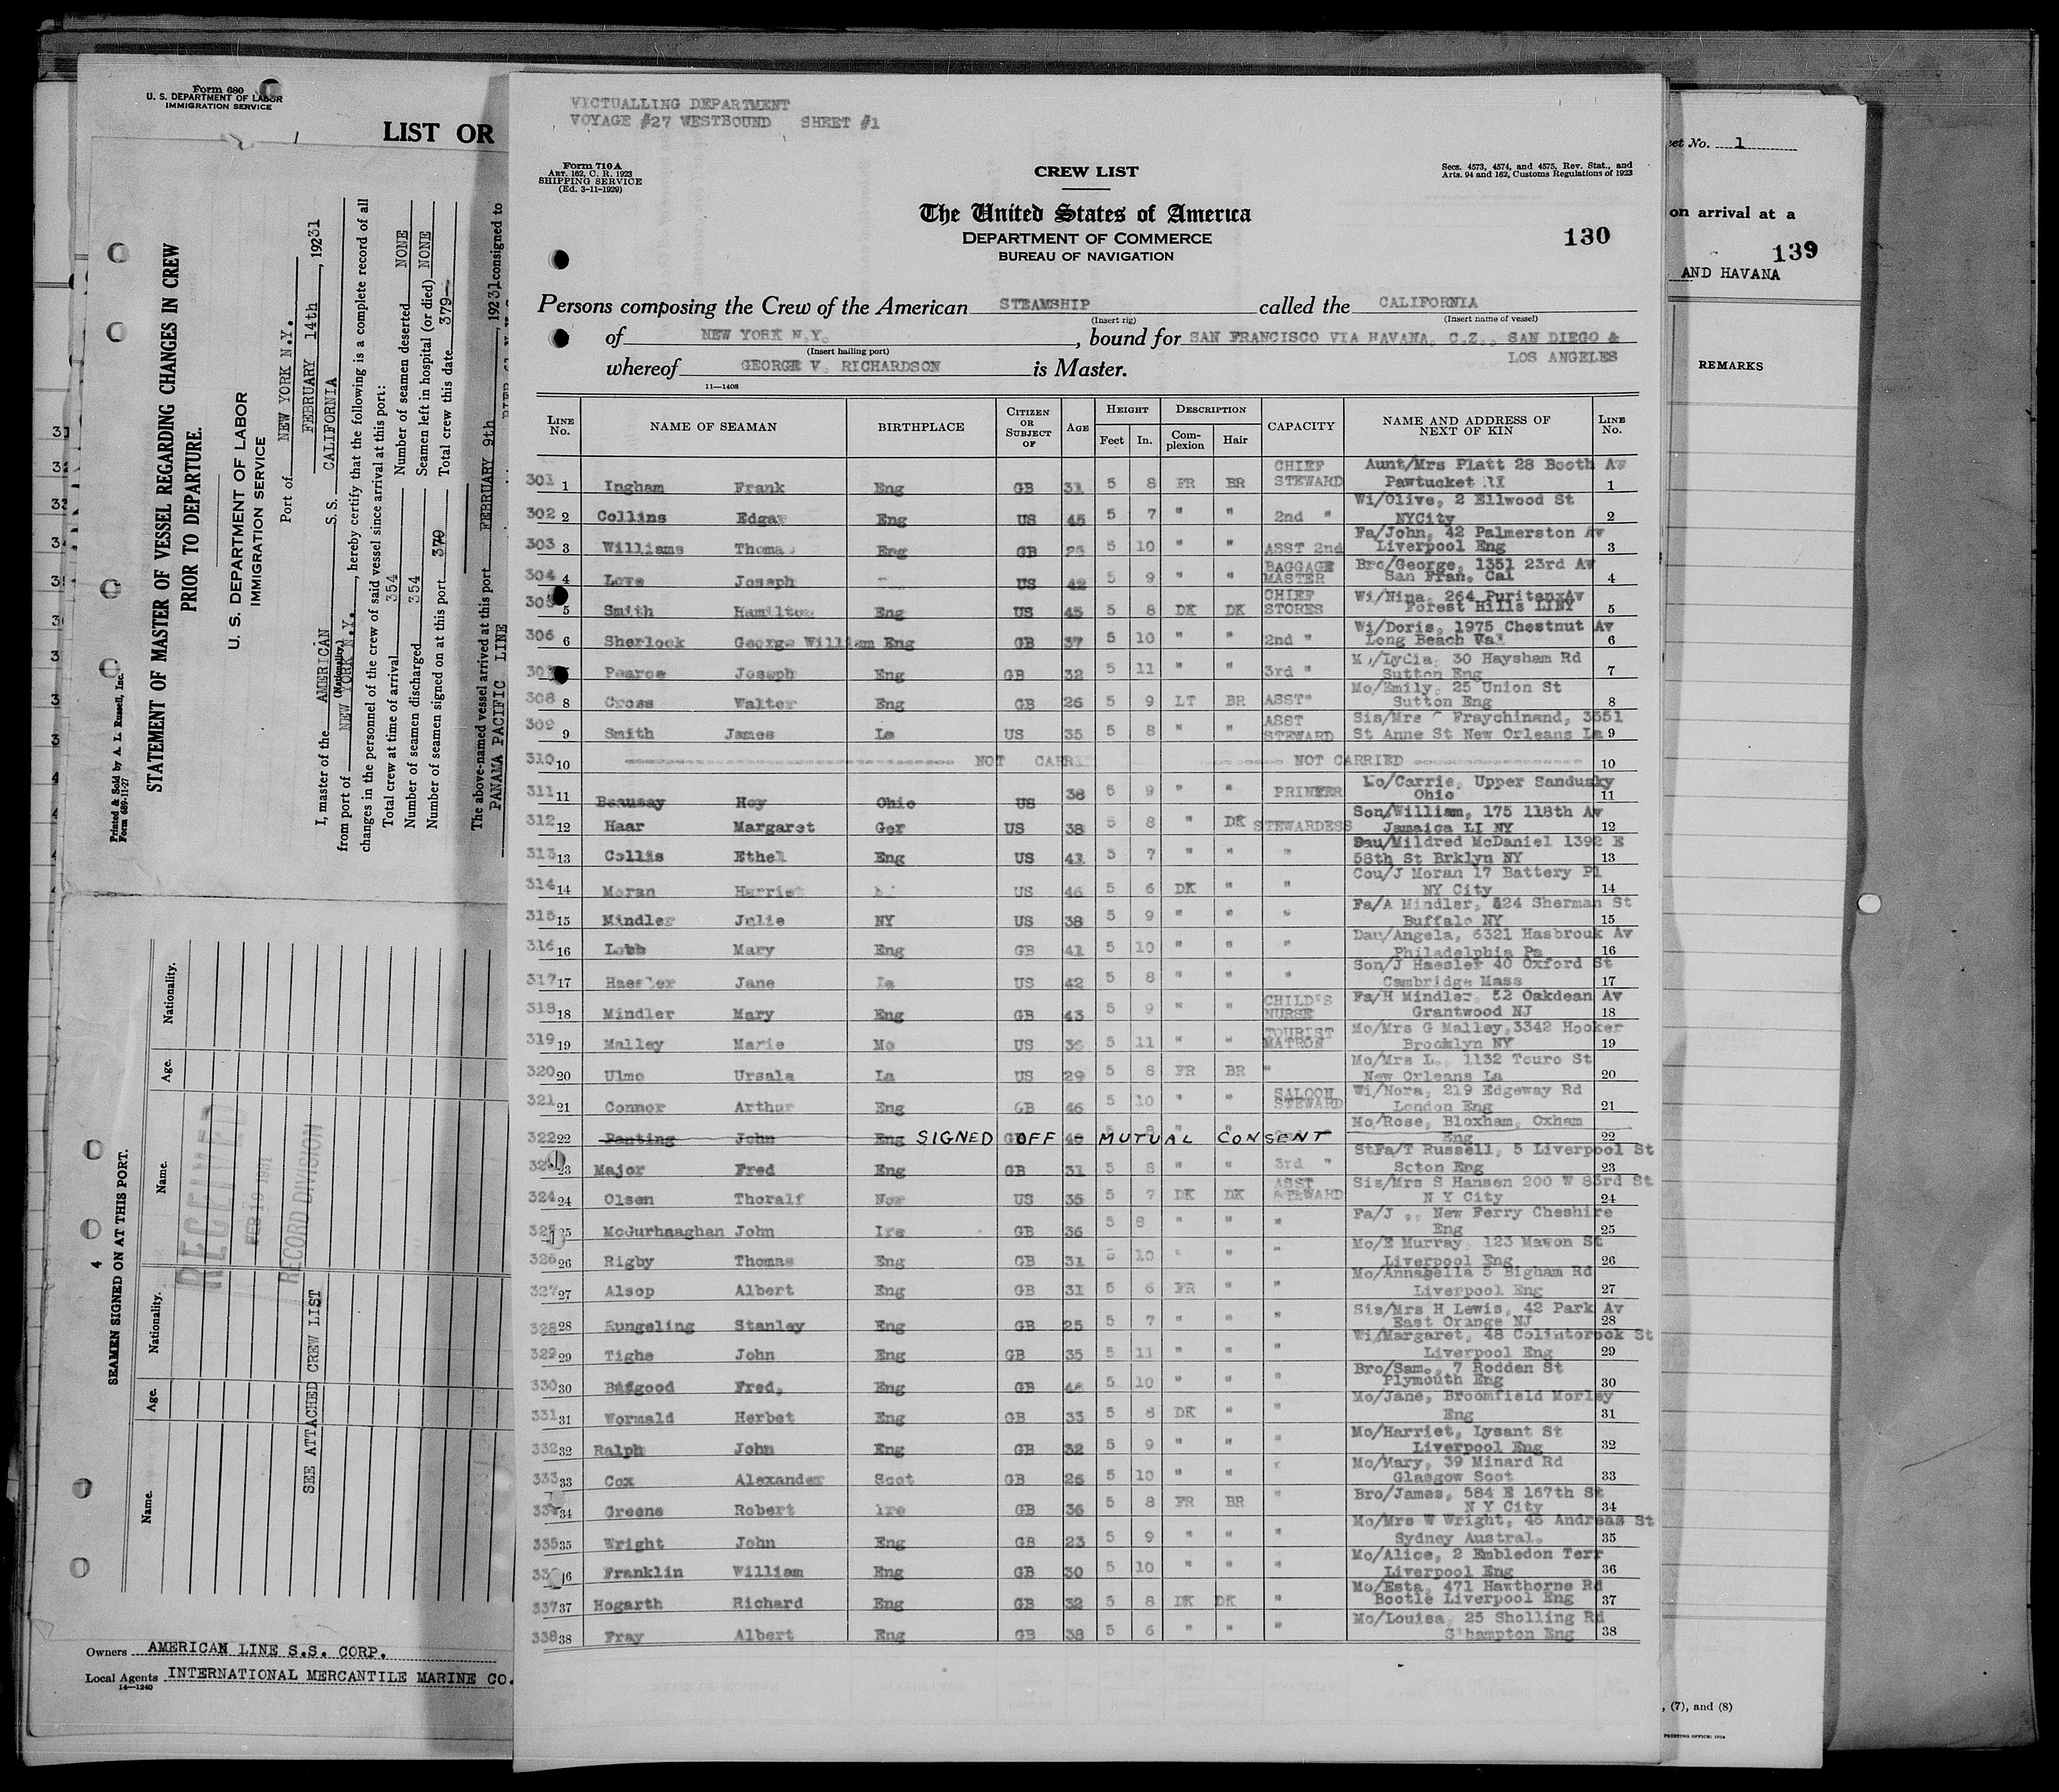 Form 680
U. S. DEPARTMENT OF LABOR
IMMIGRATION SERVICE
LIST OR
STATEMENT OF MASTER OF VESSEL REGARDING CHANGES IN CREW
PRIOR TO DEPARTURE.
U. S. DEPARTMENT OF LABOR
IMMIGRATION SERVICE
Port of NEW YORK N.Y.
FEBRUARY 14th, 19231
I, master of the AMERICAN S. S. CALIFORNIA
(Nationality)
from port of NEW YORK N.Y., hereby certify that the following is a complete record of all
changes in the personnel of the crew of said vessel since arrival at this port:
Total crew at time of arrival 354 Number of seamen deserted NONE
Number of seamen discharged 354 Seamen left in hospital (or died) NONE
Number of seamen signed on at this port 379 Total crew this date 379
The above-named vessel arrived at this port FEBRUARY 9th, 19231 consigned to
PANAMA PACIFIC LINE
Printed & Sold by A. L. Russell, Inc.
Form 689-11-27
4
SEAMEN SIGNED ON AT THIS PORT.
Name. Age. Nationality. Name. Age. Nationality.
SEE ATTACHED CREW LIST
RECEIVED
FEB 1931
RECORD DIVISION
Owners AMERICAN LINE S.S. CORP.
Local Agents INTERNATIONAL MERCANTILE MARINE CO.
14—1240
VICTUALLING DEPARTMENT
VOYAGE #27 WESTBOUND SHEET #1
Form 710 A
ART. 162, C. R. 1923
SHIPPING SERVICE
(Ed. 3-11-1929)
CREW LIST
Secs. 4573, 4574, and 4575, Rev. Stat., and
Arts. 94 and 162, Customs Regulations of 1923
The United States of America
DEPARTMENT OF COMMERCE
BUREAU OF NAVIGATION
130
Persons composing the Crew of the American STEAMSHIP called the CALIFORNIA
(Insert rig) (Insert name of vessel)
of NEW YORK N.Y., bound for SAN FRANCISCO VIA HAVANA, C.Z., SAN DIEGO &
(Insert hailing port) LOS ANGELES
whereof GEORGE V. RICHARDSON is Master.
11—1408
LINE No. NAME OF SEAMAN BIRTHPLACE CITIZEN OR SUBJECT OF AGE HEIGHT Feet In. DESCRIPTION Complexion Hair CAPACITY NAME AND ADDRESS OF NEXT OF KIN LINE No.
301 1 Ingham Frank Eng GB 31 5 8 FR BR CHIEF STEWARD Aunt/Mrs Platt 28 Booth Av Pawtucket RI 1
302 2 Collins Edgar Eng US 45 5 7 " " 2nd " Wi/Olive, 2 Ellwood St NYCity 2
303 3 Williams Thoma Eng GB 5 10 " " ASST 2nd Fa/John, 42 Palmerston Av Liverpool Eng 3
304 4 Love Joseph US 42 5 9 " " BAGGAGE MASTER Bro/George, 1351 23rd Av San Fran. Cal 4
305 5 Smith Hamilton Eng US 45 5 8 DK DK CHIEF STORES Wi/Nina, 264 PuritanxAv Forest Hills LINY 5
306 6 Sherlock George William Eng GB 37 5 10 " " 2nd " Wi/Doris, 1975 Chestnut Av Long Beach 6
307 Pearce Joseph Eng GB 32 5 11 " " 3rd " Lydia, 30 Haysham Rd Sutton Eng 7
308 8 Cross Walter Eng GB 26 5 9 LT BR ASST" Mo/Emily, 25 Union St Sutton Eng 8
309 9 Smith James La US 35 5 8 " " ASST STEWARD Sis/Mrs Fraychinand, 3551 St Anne St New Orleans La 9
310 10 NOT CARRI NOT CARRIED 10
311 11 Beausay Hoy Ohio US 38 5 9 " " PRINTER Mo/Carrie, Upper Sandusky Ohio 11
312 12 Haar Margaret Ger US 38 5 8 " DK STEWARDESS Son/William, 175 118th Av Jamaica LI NY 12
313 13 Collis Ethel Eng US 41 5 7 " " " Dau/Mildred McDaniel 1392 E 58th St Brklyn NY 13
314 14 Moran Harriet US 46 5 6 DK " " Cou/J Moran 17 Battery Pl NY City 14
315 15 Mindler Julie NY US 38 5 9 " " " Fa/A Mindler, 424 Sherman St Buffalo NY 15
316 16 Lobb Mary Eng GB 41 5 10 " " " Dau/Angela, 6321 Hasbrouk Av Philadelphia Pa 16
317 17 Haesler Jane La US 42 5 8 " " " Son/J Haesler 40 Oxford St Cambridge Mass 17
318 18 Mindler Mary Eng GB 43 5 9 " " CHILD'S NURSE Fa/H Mindler, 52 Oakdean Av Grantwood NJ 18
319 19 Malley Marie Mo US 36 5 11 " " TOURIST MATRON Mo/Mrs G Malley, 3342 Hooker Brooklyn NY 19
320 20 Ulmo Ursala La US 29 5 8 FR BR " Mo/Mrs L., 1132 Touro St New Orleans La 20
321 21 Connor Arthur Eng GB 46 5 10 " " SALOON STEWARD Wi/Nora, 219 Edgeway Rd London Eng 21
322 22 Panting John Eng SIGNED OFF MUTUAL CONSENT Mo/Rose, Bloxham, Oxham Eng 22
323 23 Major Fred Eng GB 31 5 8 " " 3rd " StFa/T Russell, 5 Liverpool St Scton Eng 23
324 24 Olsen Thoralf Nor US 35 5 7 DK DK ASST STEWARD Sis/Mrs S Hansen 200 W 83rd St N Y City 24
325 25 McGurhnaghan John Ire GB 36 5 8 " " " Fa/J ., New Ferry Cheshire Eng 25
326 26 Rigby Thomas Eng GB 31 5 10 " " " Mo/E Murray, 123 Mawon St Liverpool Eng 26
327 27 Alsop Albert Eng GB 31 5 6 FR " " Mo/Annabella 5 Bigham Rd Liverpool Eng 27
328 28 Rungeling Stanley Eng GB 25 5 7 " " " Sis/Mrs H Lewis, 42 Park Av East Orange NJ 28
329 29 Tighe John Eng GB 35 5 11 " " " Wi/Margaret, 48 Colintorook St Liverpool Eng 29
330 30 Fred, Eng GB 5 10 " " " Bro/Sam., 7 Rodden St Plymouth Eng 30
331 31 Wormald Herbet Eng GB 33 5 8 DK " " Mo/Jane, Broomfield Morley Eng 31
332 32 Ralph John Eng GB 32 5 9 " " " Mo/Harriet, Lysant St Liverpool Eng 32
333 33 Cox Alexander Scot GB 26 5 10 " " " Mo/Mary, 39 Minard Rd Glasgow Scot 33
334 34 Greene Robert Ire GB 36 5 8 FR BR " Bro/James, 584 E 167th St N Y City 34
335 35 Wright John Eng GB 23 5 9 " " " Mo/Mrs W Wright, 45 Andreas St Sydney Austral. 35
336 36 Franklin William Eng GB 30 5 10 " " " Mo/Alice, 2 Embledon Terr Liverpool Eng 36
337 37 Hogarth Richard Eng GB 32 5 8 DK DK " Mo/Esta, 471 Hawthorne Rd Bootle Liverpool Eng 37
338 38 Fray Albert Eng GB 38 5 6 " " " Mo/Louisa, 25 Sholling Rd S'hampton Eng 38
et No. 1
on arrival at a
139
AND HAVANA
REMARKS
, (7), and (8)
PRINTING OFFICE: 1929